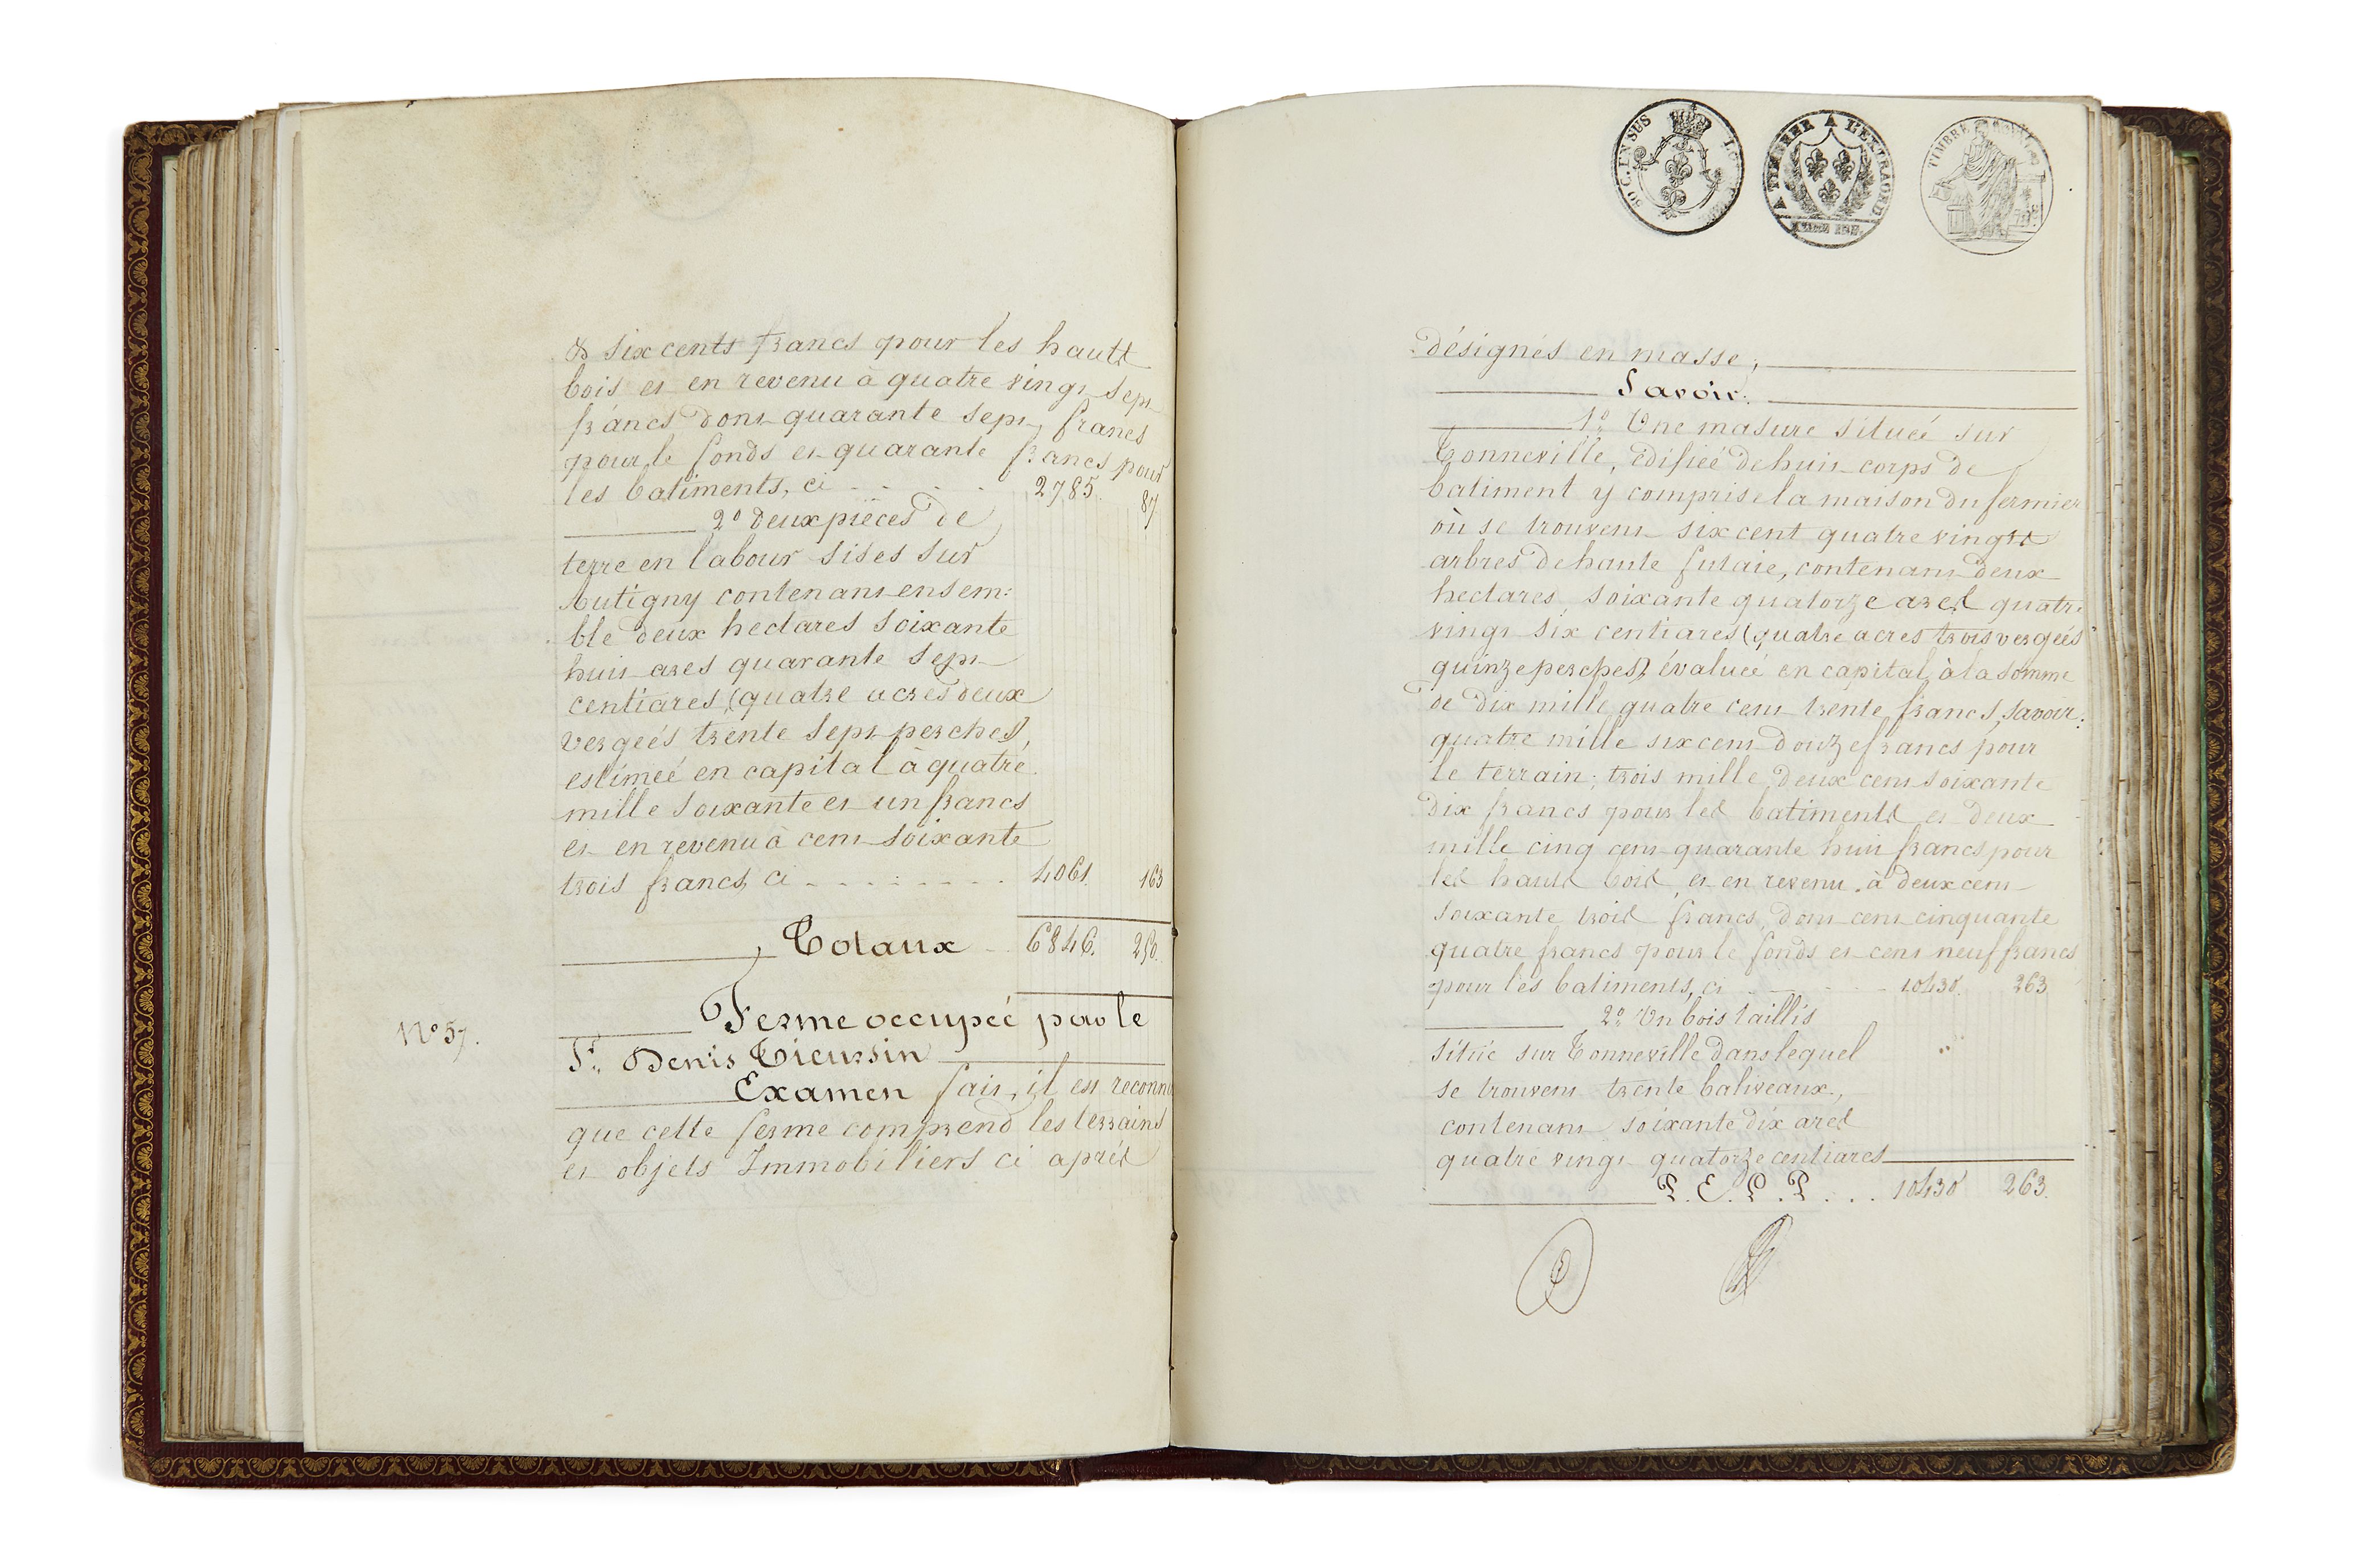 & six cents francs pour les hauts
bois et en revenu à quatre vingt sept
francs dont quarante sept francs
pour le fonds et quarante francs pour
les batiments, ci - - - - 2785. 87
2° deux pièces de
terre en labour sises sur
Autigny contenant ensem:
ble deux hectares soixante
huit ares quarante sept
centiares (quatre acres deux
vergeés trente sept perches)
estimeé en capital à quatre
mille soixante et un francs
et en revenu à cent soixante
trois francs, ci - - - - - - - 4061. 163
Totaux - 6846. 250.
N° 57.
Ferme occupeé par le
Sr. Denis
Examen fait, il est reconnu
que cette ferme comprend les terrains
et objets Immobiliers ci après
50 C. EN SUS
TIMBRE A L'EXTRAORD
TIMBRE ROYAL
désignés en masse;
Savoir:
1° Une masure situeé sur
Tonneville, édifieé de huit corps de
batiment y compris la maison du fermier
où se trouvent six cent quatre vingts
arbres de haute futaie, contenant deux
hectares soixante quatorze ares quatre
vingt six centiares (quatre acres trois vergeés
quinze perches) évalueé en capital à la somme
de dix mille quatre cent trente francs, savoir:
quatre mille six cent douze francs pour
le terrain; trois mille deux cent soixante
dix francs pour les batiments et deux
mille cinq cent quarante huit francs pour
les hauts bois, et en revenu à deux cent
soixante trois francs, dont cent cinquante
quatre francs pour le fonds et cent neuf francs
pour les batiments, ci - - - - 10430. 263
2° Un bois taillis
situé sur Tonneville dans lequel
se trouvent trente baliveaux,
contenant soixante dix ares
quatre vingt quatorze centiares
10430 263.